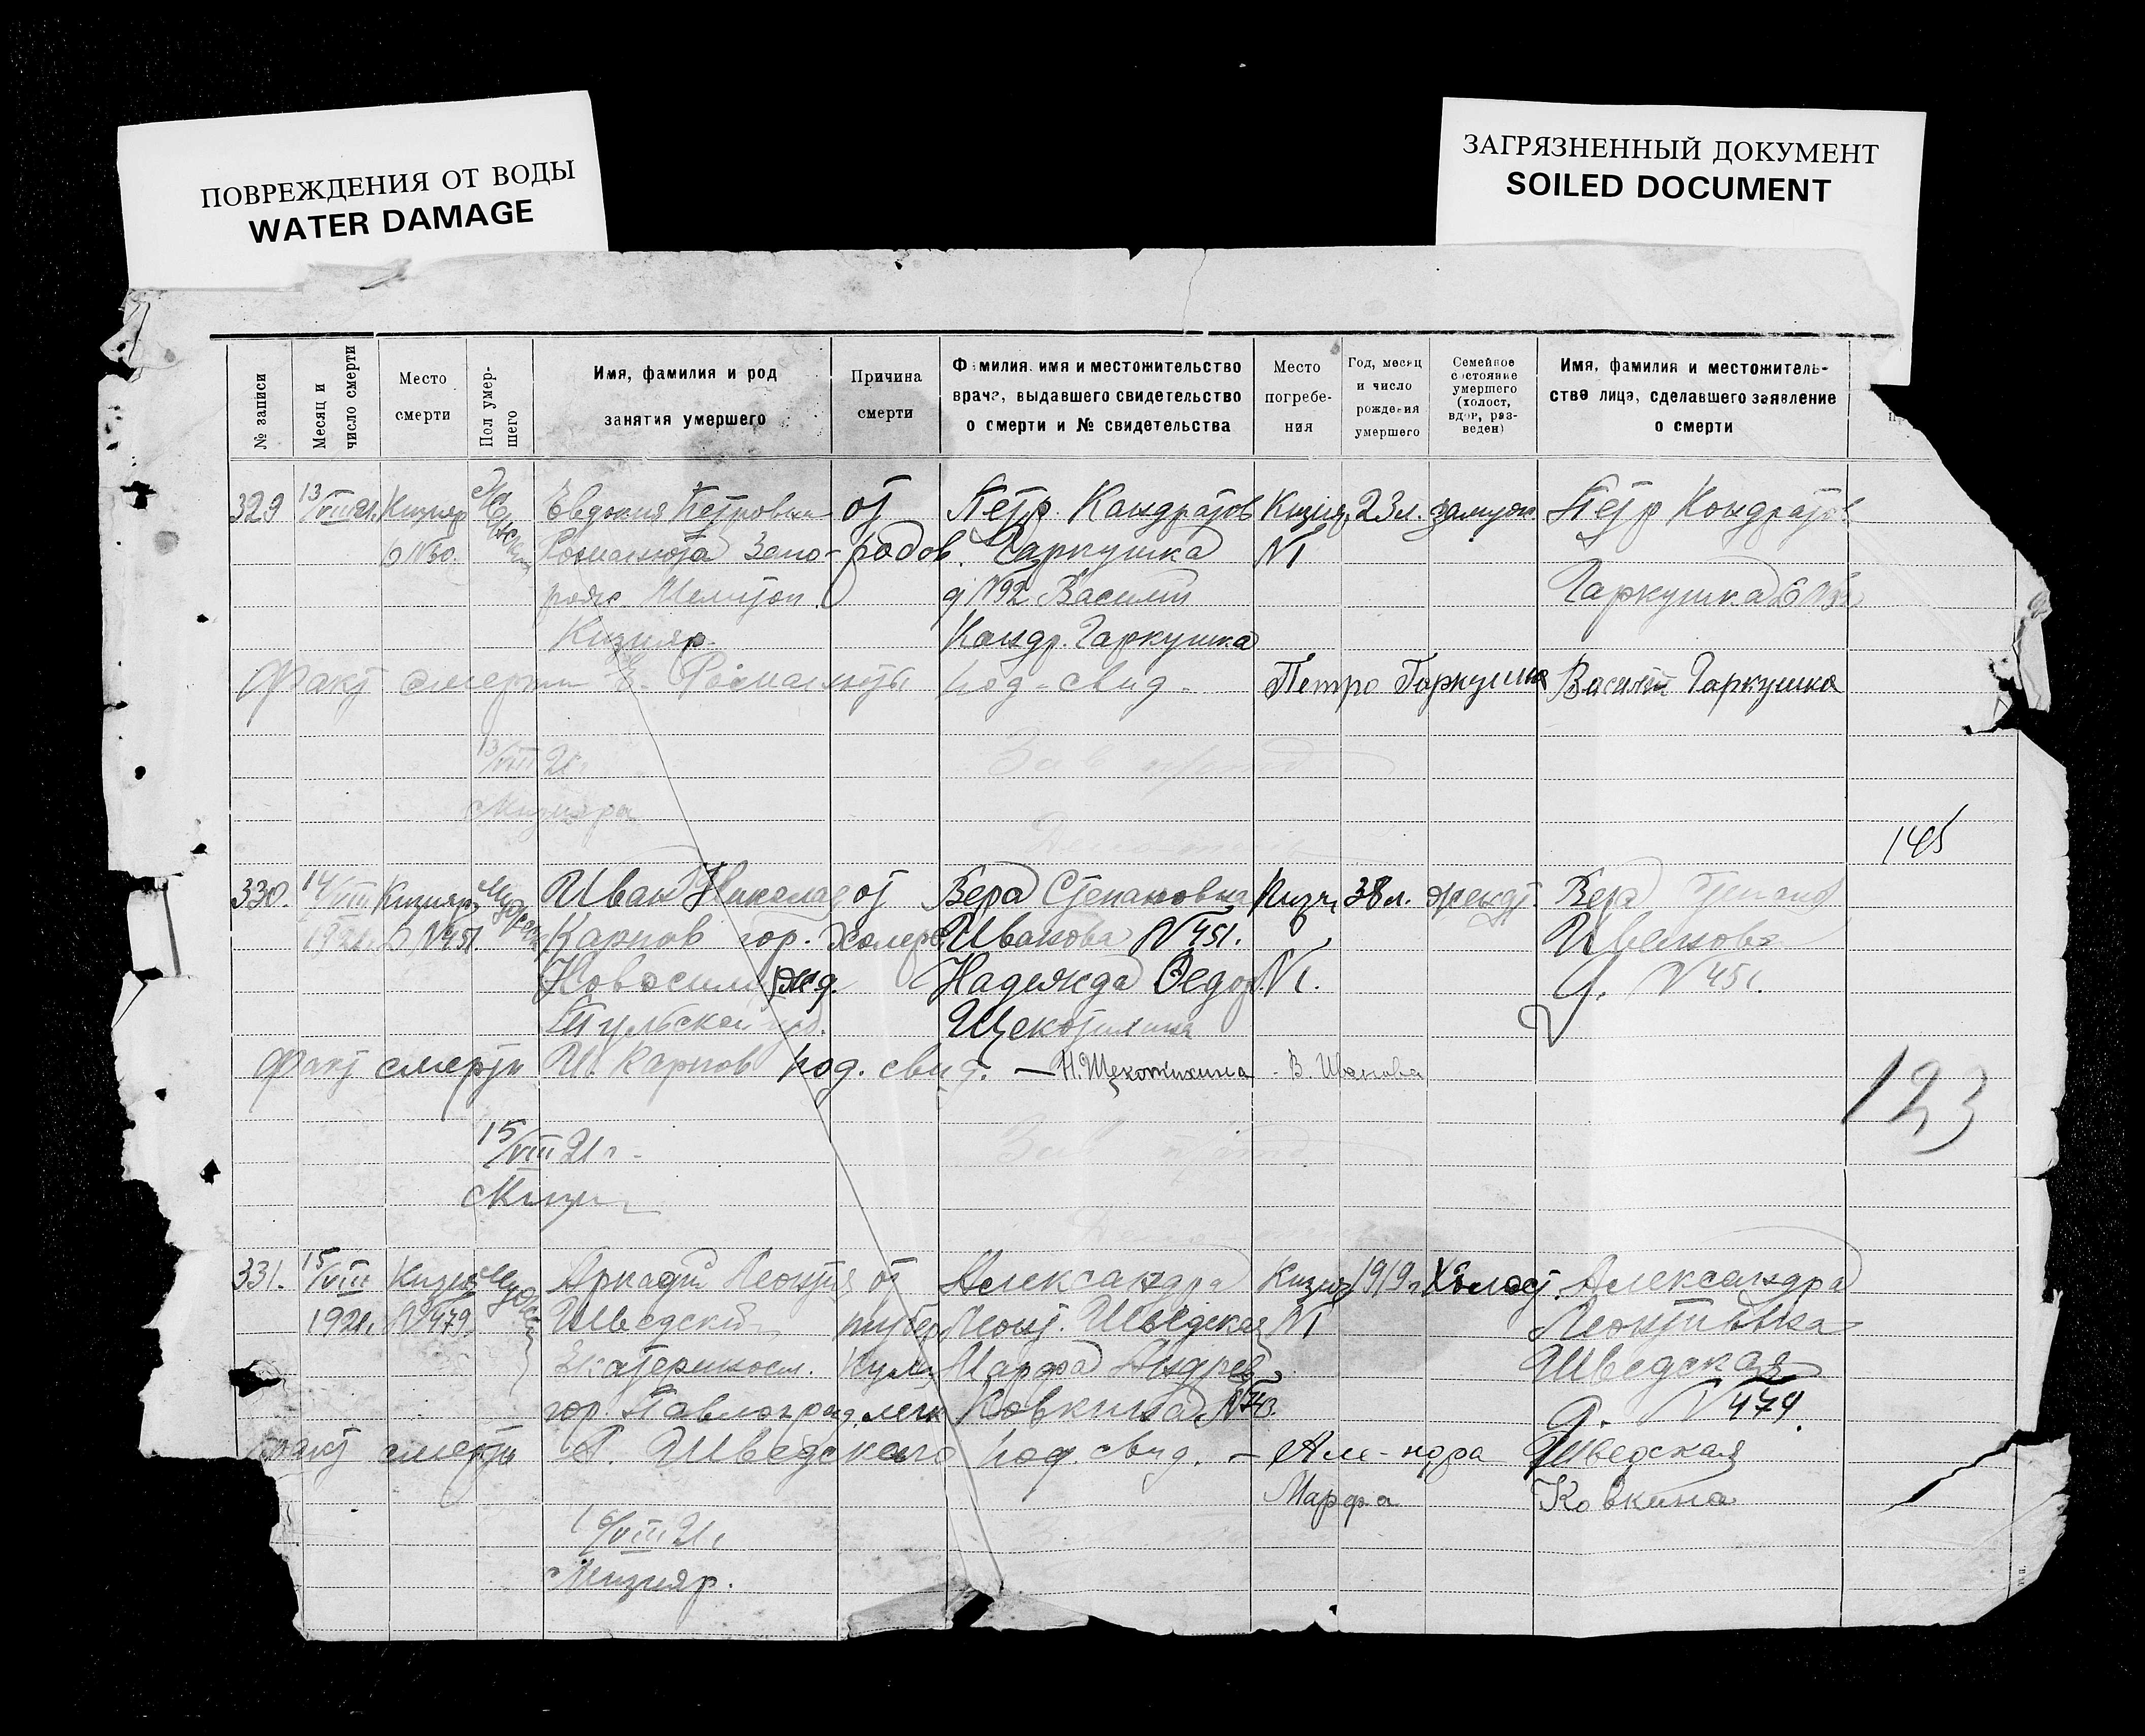 ПОВРЕЖДЕНИЯ ОТ ВОДЫ
WATER DAMAGE
ЗАГРЯЗНЕННЫЙ ДОКУМЕНТ
SOILED DOCUMENT
№ записи
Месяц и число смерти
Место смерти
Пол умер-шего
Имя, фамилия и род занятия умершего
Причина смерти
Фамилия, имя и местожительство врача, выдавшего свидетельство о смерти и № свидетельства
Место погребе-ния
Год, месяц и число рождения умершего
Семейное состояние умершего (холост, вдов, раз-веден)
Имя, фамилия и местожитель-ство лица, сделавшего заявление о смерти
329 13/VIII 21. Кизияр Евдокия Петровна от Петр Кандратов Кизияр 23 л. замуж Петр Кондратов
Запо- родов. Гаркушка N1
Мелитоп. д N92 Василий Гаркушка
Кизияр. Кандр. Гаркушка
Факт смерти Е. под-свид- Петро Гаркушка Василий Гаркушка
13/VIII 21
145
330. 14/VIII Кизияр Иван Николаев от Вера Степановна Кизи 38 л. Вера Степанов
1921. N451. Карпов гор. Холеры Иванова N451. Иванова
Новосил Надежда Федор. N1. д. N451.
Тульской губ. Щекотихина
Факт смерти И. Карпов под. свид. — Н. Щекотихина - В. Иванова
123
15/VIII 21 г.
331. 15/VIII Кизияр Аркадий Леонтия от Александра Кизияр 1919 г Холост. Александра
1921. N479. Шведский тубер Леонт. Шведская N1 Леонтиевна
Екатериносл. кулез Марфа Андрев. Шведская
гор. Павлоград. легк Ковкина N д. N479.
Факт смерти А. Шведского под. свид. — Але-ндра Шведская
Марфа Ковкина
16/VIII 21 г
Кизияр.